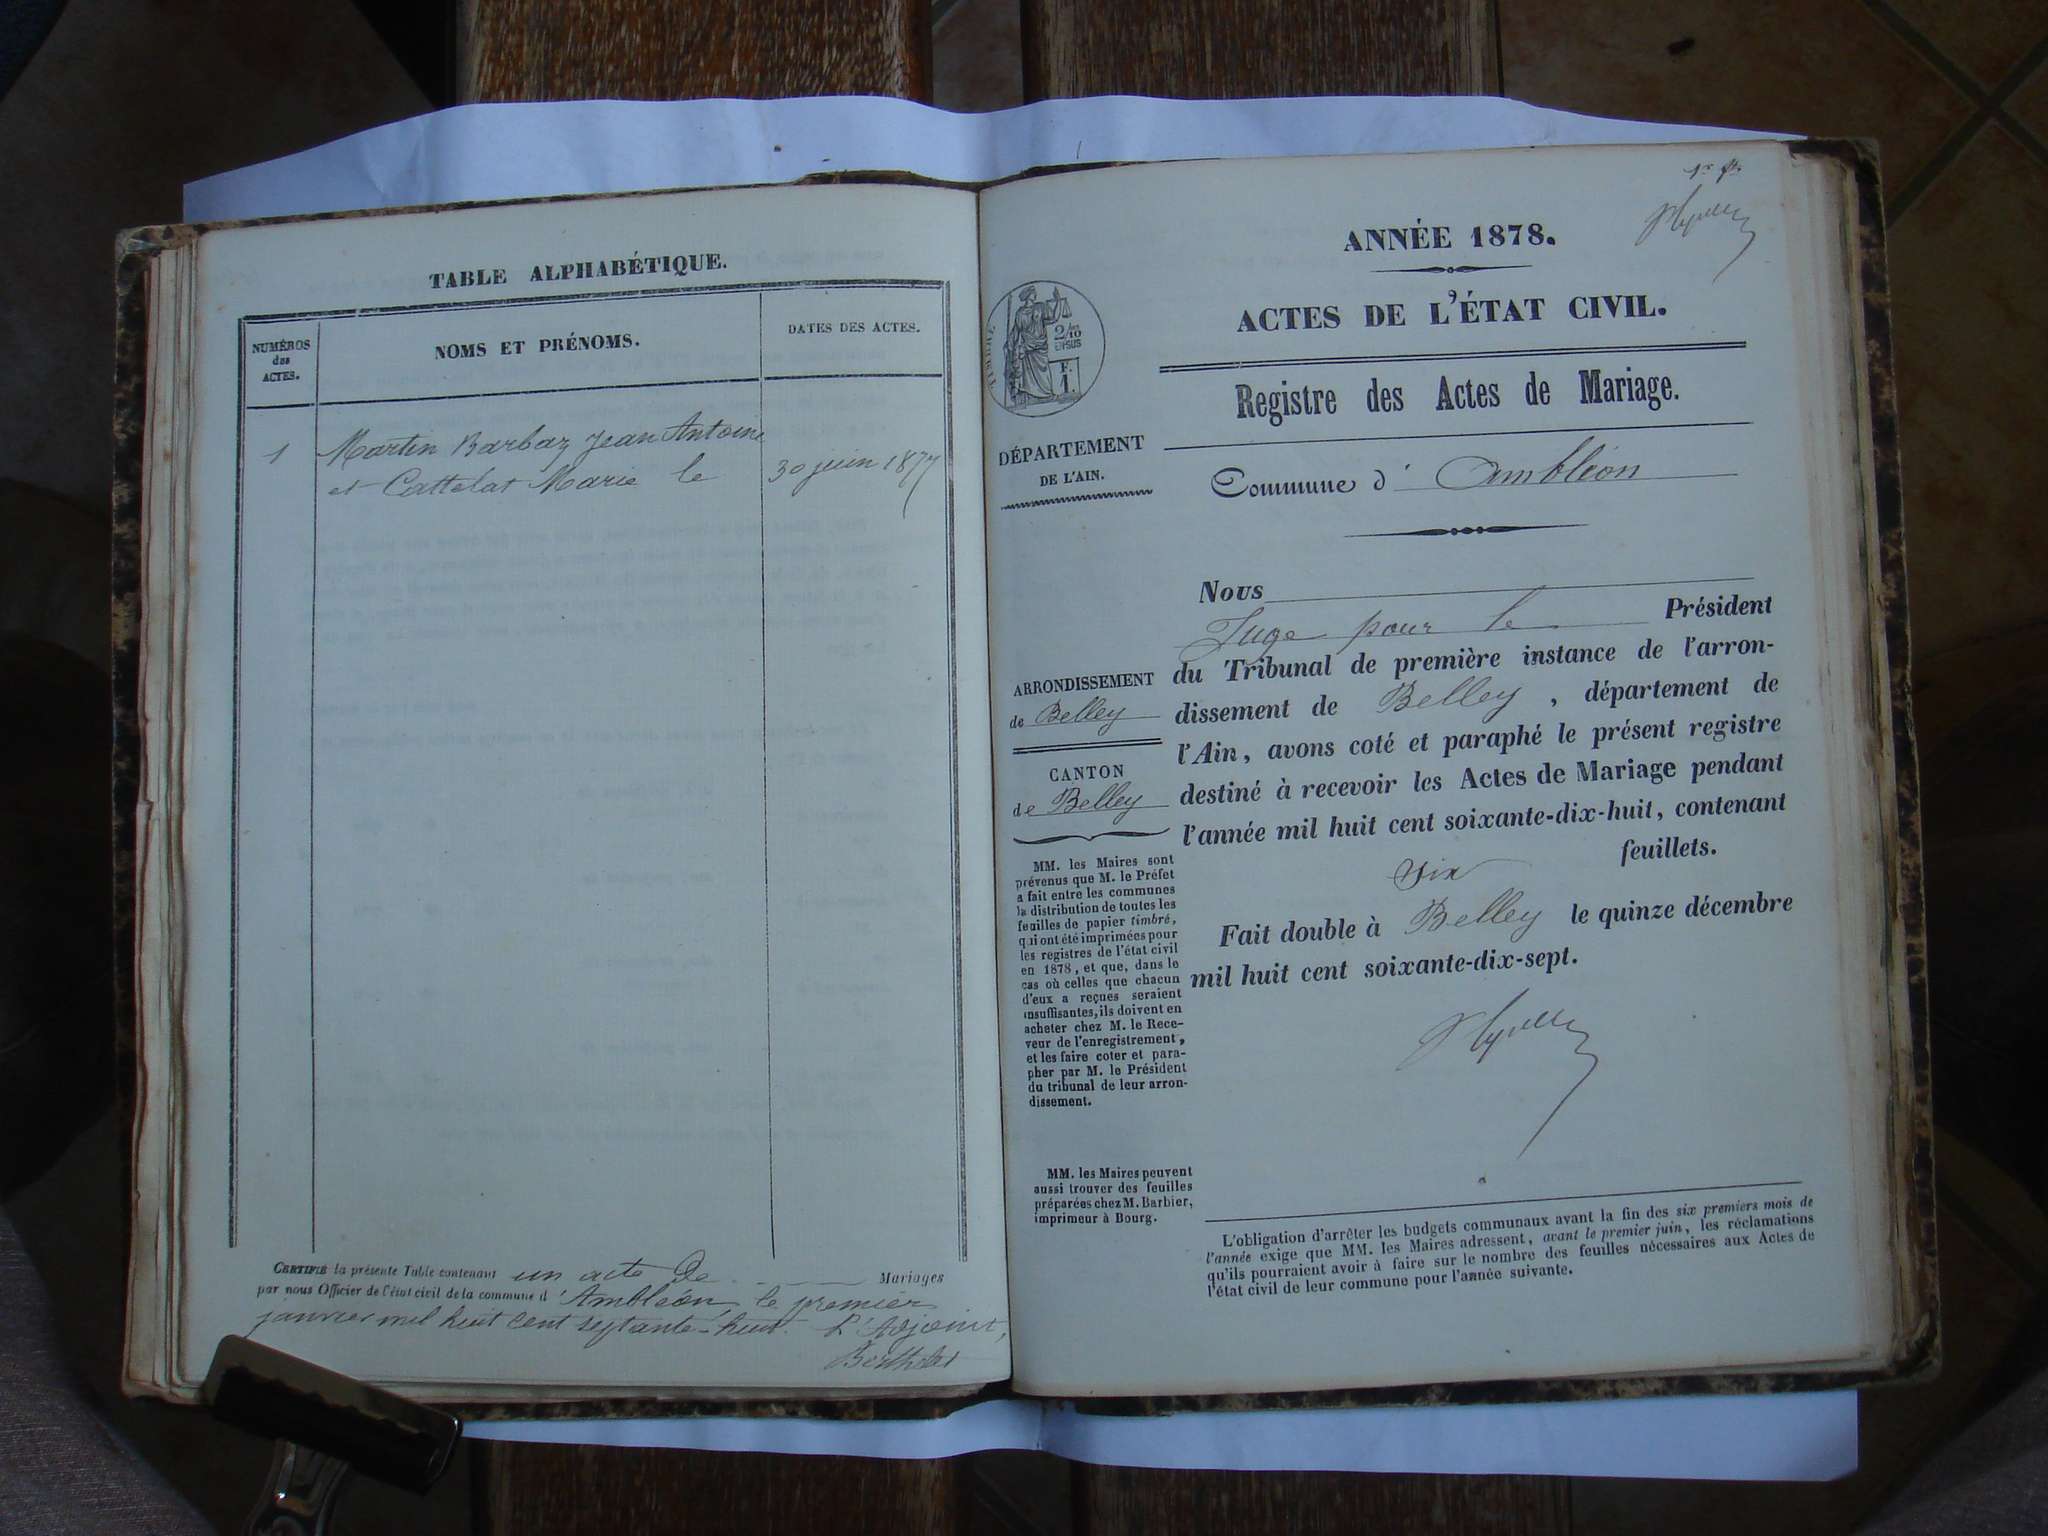 TABLE ALPHABÉTIQUE.
NUMÉROS
des
ACTES.
NOMS ET PRÉNOMS.
DATES DES ACTES.
1
Martin Barbaz Jean Antoine
et Cattelat Marie le
30 juin 1877
CERTIFIÉ la présente Table contenant un acte de Mariages
par nous Officier de l'état civil de la commune d'Ambléon, le premier
janvier mil huit cent septante-huit. L'Adjoint,
Berthelet
1er
ANNÉE 1878.
ACTES DE L'ÉTAT CIVIL.
Registre des Actes de Mariage.
Commune d'Ambléon
TIMBRE
2/10
EN SUS
F.
1.
DÉPARTEMENT
DE L'AIN.
ARRONDISSEMENT
de Belley
CANTON
de Belley
MM. les Maires sont
prévenus que M. le Préfet
a fait entre les communes
la distribution de toutes les
feuilles de papier timbré,
qui ont été imprimées pour
les registres de l'état civil
en 1878, et que, dans le
cas où celles que chacun
d'eux a reçues seraient
insuffisantes, ils doivent en
acheter chez M. le Rece-
veur de l'enregistrement,
et les faire coter et para-
pher par M. le Président
du tribunal de leur arron-
dissement.
MM. les Maires peuvent
aussi trouver des feuilles
préparées chez M. Barbier,
imprimeur à Bourg.
Nous
Juge pour le Président
du Tribunal de première instance de l'arron-
dissement de Belley, département de
l'Ain, avons coté et paraphé le présent registre
destiné à recevoir les Actes de Mariage pendant
l'année mil huit cent soixante-dix-huit, contenant
six feuillets.
Fait double à Belley le quinze décembre
mil huit cent soixante-dix-sept.
L'obligation d'arrêter les budgets communaux avant la fin des six premiers mois de
l'année exige que MM. les Maires adressent, avant le premier juin, les réclamations
qu'ils pourraient avoir à faire sur le nombre des feuilles nécessaires aux Actes de
l'état civil de leur commune pour l'année suivante.